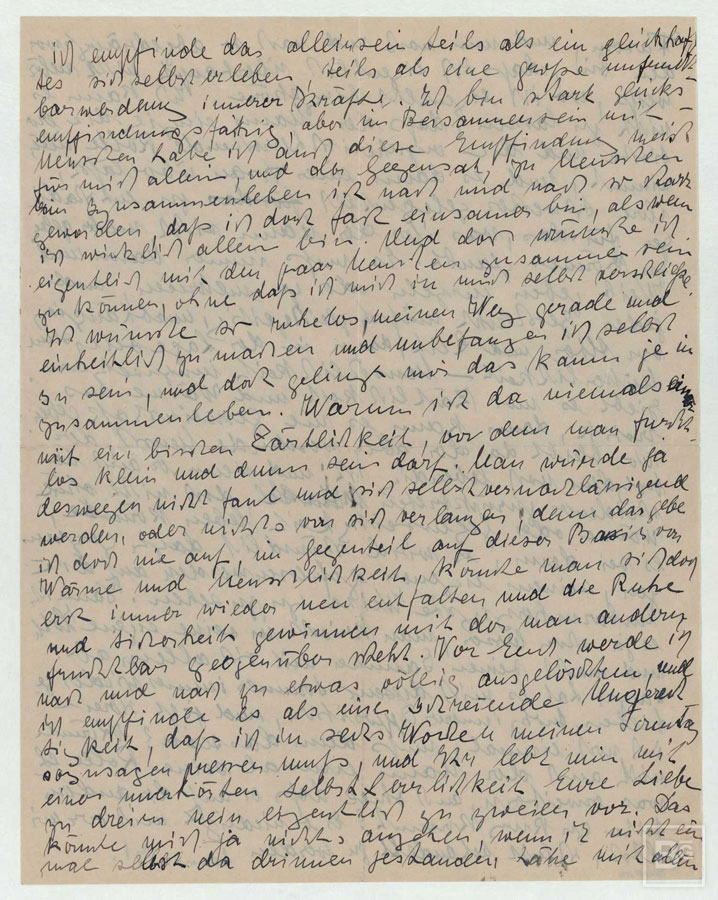 ich empfinde das alleinsein teils als ein glückhaf
tes sich selbst erleben, teils als eine große unfrucht
barwerdung innerer Kräfte. Ich bin stark glücks-
empfindungsfähig, aber im Beisammensein mit
Menschen habe ich auch diese Empfindung meist
für mich allein und der Gegensatz zu Menschen
im zusammenleben ist nach und nach so stark
geworden, daß ich dort fast einsamer bin, als wenn
ich wirklich allein bin. Und doch wünsche ich
eigentlich mit den paar Menschen zusammen sein
zu können, ohne daß ich mich in mich selbst verschließe.
Ich wünsche so ruhelos, meinen Weg gerade und
einheitlich zu machen und unbefangen ich selbst
zu sein, und doch gelingt mir das kaum je im
zusammenleben. Warum ist da niemals einer
mit ein bisschen Zärtlichkeit, vor dem man furcht-
los klein und dumm sein darf. Man würde ja
deswegen nicht faul und sich selbst vernachlässigend
werden, oder nichts von sich verlangen, denn das gebe
ich doch nie auf, im gegenteil auf dieser Basis von
Wärme und Menschlichkeit, könnte man sich doch
erst immer wieder neu entfalten und die Ruhe
und Sicherheit gewinnen mit der man andern
fruchtbar gegenüber steht. Vor Euch werde ich
nach und nach zu etwas völlig ausgelöschtem, und
ich empfinde es als eine schreiende Ungerech
tigkeit, daß ich in sechs Wochen meinen Sonntag
sozusagen pressen muß, und Ihr lebt mir mit
einer unerhörten Selbstherrlichkeit Eure Liebe
zu dreien nein eigentlich zu zweien vor. Das
könnte mich ja nichts angehen, wenn ich nicht ein
mal selbst da drinnen gestanden hätte mit allen